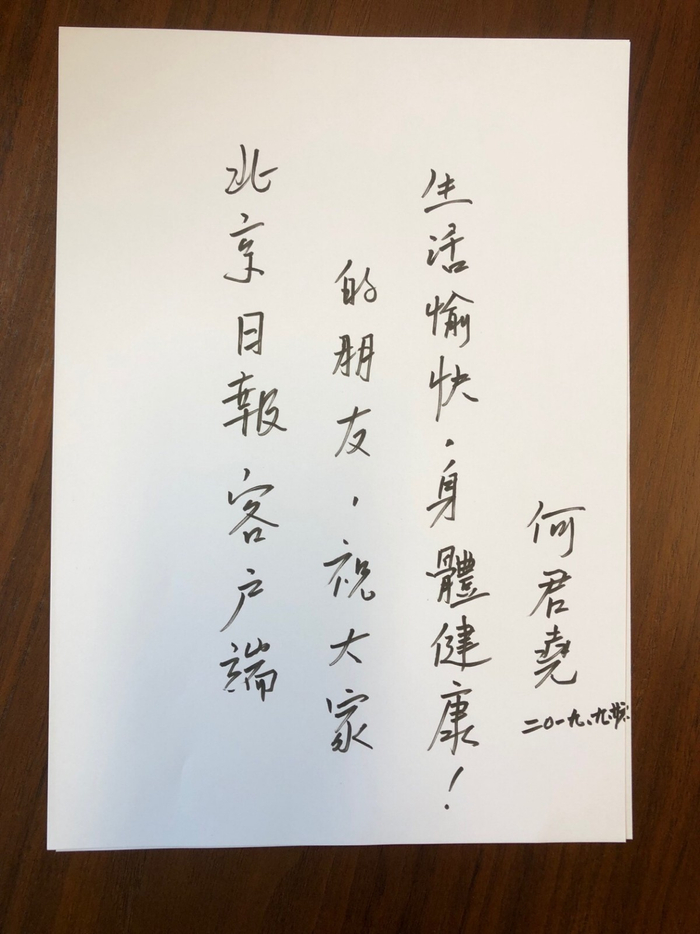 北京日報客户端
的朋友，祝大家
生活愉快．身體健康！
何君堯
二〇一九、九